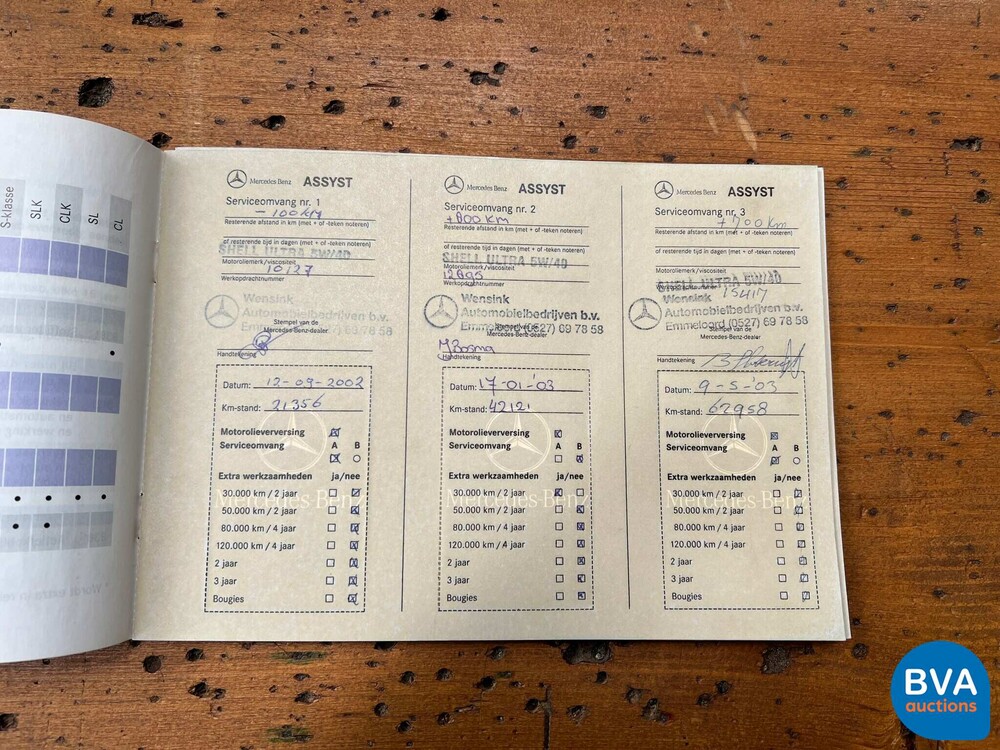 S-klasse
SLK
CLK
SL
CL
Mercedes Benz ASSYST
Serviceomvang nr. 1
- 100 km
Resterende afstand in km (met + of -teken noteren)
of resterende tijd in dagen (met + of -teken noteren)
SHELL ULTRA 5W/40
Motoroliemerk/viscositeit
10127
Werkopdrachtnummer
Wensink
Automobielbedrijven b.v.
Emmeloord (0527) 69 78 58
Stempel van de
Mercedes-Benz-dealer
Handtekening
Datum: 12-09-2002
Km-stand: 21356
Motorolieverversing
Serviceomvang A B
Extra werkzaamheden ja/nee
30.000 km / 2 jaar
50.000 km / 2 jaar
80.000 km / 4 jaar
120.000 km / 4 jaar
2 jaar
3 jaar
Bougies
Mercedes-Benz
Mercedes Benz ASSYST
Serviceomvang nr. 2
+800 km
Resterende afstand in km (met + of -teken noteren)
of resterende tijd in dagen (met + of -teken noteren)
SHELL ULTRA 5W/40
Motoroliemerk/viscositeit
12695
Werkopdrachtnummer
Wensink
Automobielbedrijven b.v.
Emmeloord (0527) 69 78 58
Stempel van de
Mercedes-Benz-dealer
Handtekening
Datum: 17-01-'03
Km-stand: 42121
Motorolieverversing
Serviceomvang A B
Extra werkzaamheden ja/nee
30.000 km / 2 jaar
50.000 km / 2 jaar
80.000 km / 4 jaar
120.000 km / 4 jaar
2 jaar
3 jaar
Bougies
Mercedes-Benz
Mercedes Benz ASSYST
Serviceomvang nr. 3
+700 km
Resterende afstand in km (met + of -teken noteren)
of resterende tijd in dagen (met + of -teken noteren)
Motoroliemerk/viscositeit
SHELL ULTRA 5W/40
Werkopdrachtnummer
15417
Wensink
Automobielbedrijven b.v.
Emmeloord (0527) 69 78 58
Stempel van de
Mercedes-Benz-dealer
Handtekening
Datum: 9-5-'03
Km-stand: 62958
Motorolieverversing
Serviceomvang A B
Extra werkzaamheden ja/nee
30.000 km / 2 jaar
50.000 km / 2 jaar
80.000 km / 4 jaar
120.000 km / 4 jaar
2 jaar
3 jaar
Bougies
Mercedes-Benz
BVA
auctions